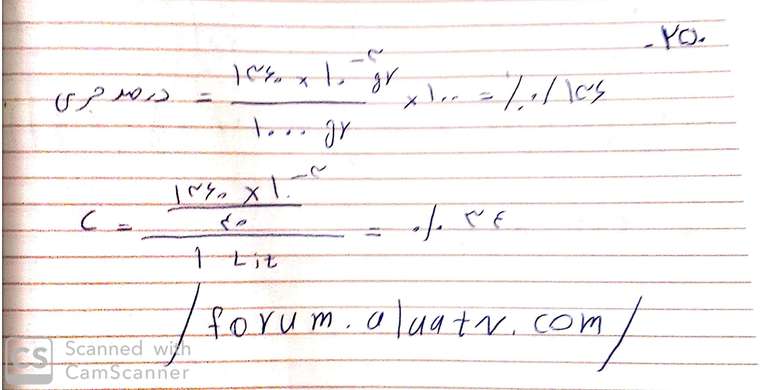 ۲۵۰-
درصد جرمی = ۱۳۶۰ × ۱۰⁻³ gr / ۱۰۰۰ gr × ۱۰۰ = %۰/۱۳۶
C = (۱۳۶۰ × ۱۰⁻³ / ۴۰) / ۱ Lit = ۰/۰۳۴
/forum.alaatv.com/
CS Scanned with
CamScanner